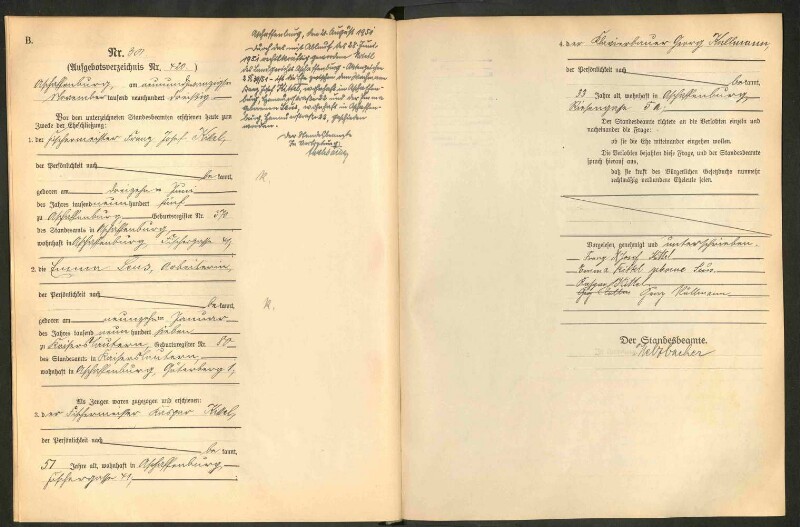 B.
Nr. 301
(Aufgebotsverzeichnis Nr. 420)
Aschaffenburg, am neunundzwanzigsten
November tausend neunhundert dreißig
Vor dem unterzeichneten Standesbeamten erschienen heute zum
Zwecke der Eheschließung:
1. der Fischermeister Franz Josef Kittel,
der Persönlichkeit nach
be kannt,
geboren am dreizehn Juni
des Jahres tausend neunhundert fünf
zu Aschaffenburg Geburtsregister Nr.
des Standesamts in Aschaffenburg
wohnhaft in Aschaffenburg, Fischergasse 41,
2. die Emma Leus, Arbeiterin,
der Persönlichkeit nach
be kannt,
geboren am neunzehn Januar
des Jahres tausend neunhundert sieben
zu Kaiserslautern, Geburtsregister Nr.
des Standesamts in Kaiserslautern,
wohnhaft in Aschaffenburg, Güterberg 1,
Als Zeugen waren zugezogen und erschienen:
3. der Fischermeister Kaspar Kittel,
der Persönlichkeit nach
be kannt,
57 Jahre alt, wohnhaft in Aschaffenburg,
Fischergasse 41,
Aschaffenburg, den August 1951
Durch das mit Ablauf des 28. Juni
1951 rechtskräftig gewordene Urteil
des Landgerichts Aschaffenburg
ist die Ehe zwischen dem
Josef Kittel, wohnhaft in Aschaffen-
burg, und der Emma
wohnhaft in Aschaffen-
burg, geschieden
worden.
Der Standesbeamte
In Vertretung
K.
K.
4. der Klavierbauer Georg Kullmann,
der Persönlichkeit nach
be kannt,
33 Jahre alt, wohnhaft in Aschaffenburg,
Riesengasse 5a,
Der Standesbeamte richtete an die Verlobten einzeln und
nacheinander die Frage:
ob sie die Ehe miteinander eingehen wollen.
Die Verlobten bejahten diese Frage, und der Standesbeamte
sprach hierauf aus,
daß sie kraft des Bürgerlichen Gesetzbuchs nunmehr
rechtmäßig verbundene Eheleute seien.
Vorgelesen, genehmigt und unterschrieben.
Franz Josef Kittel
Emma Kittel geborne Leus.
Kaspar Kittel
Georg Kullmann
Der Standesbeamte.